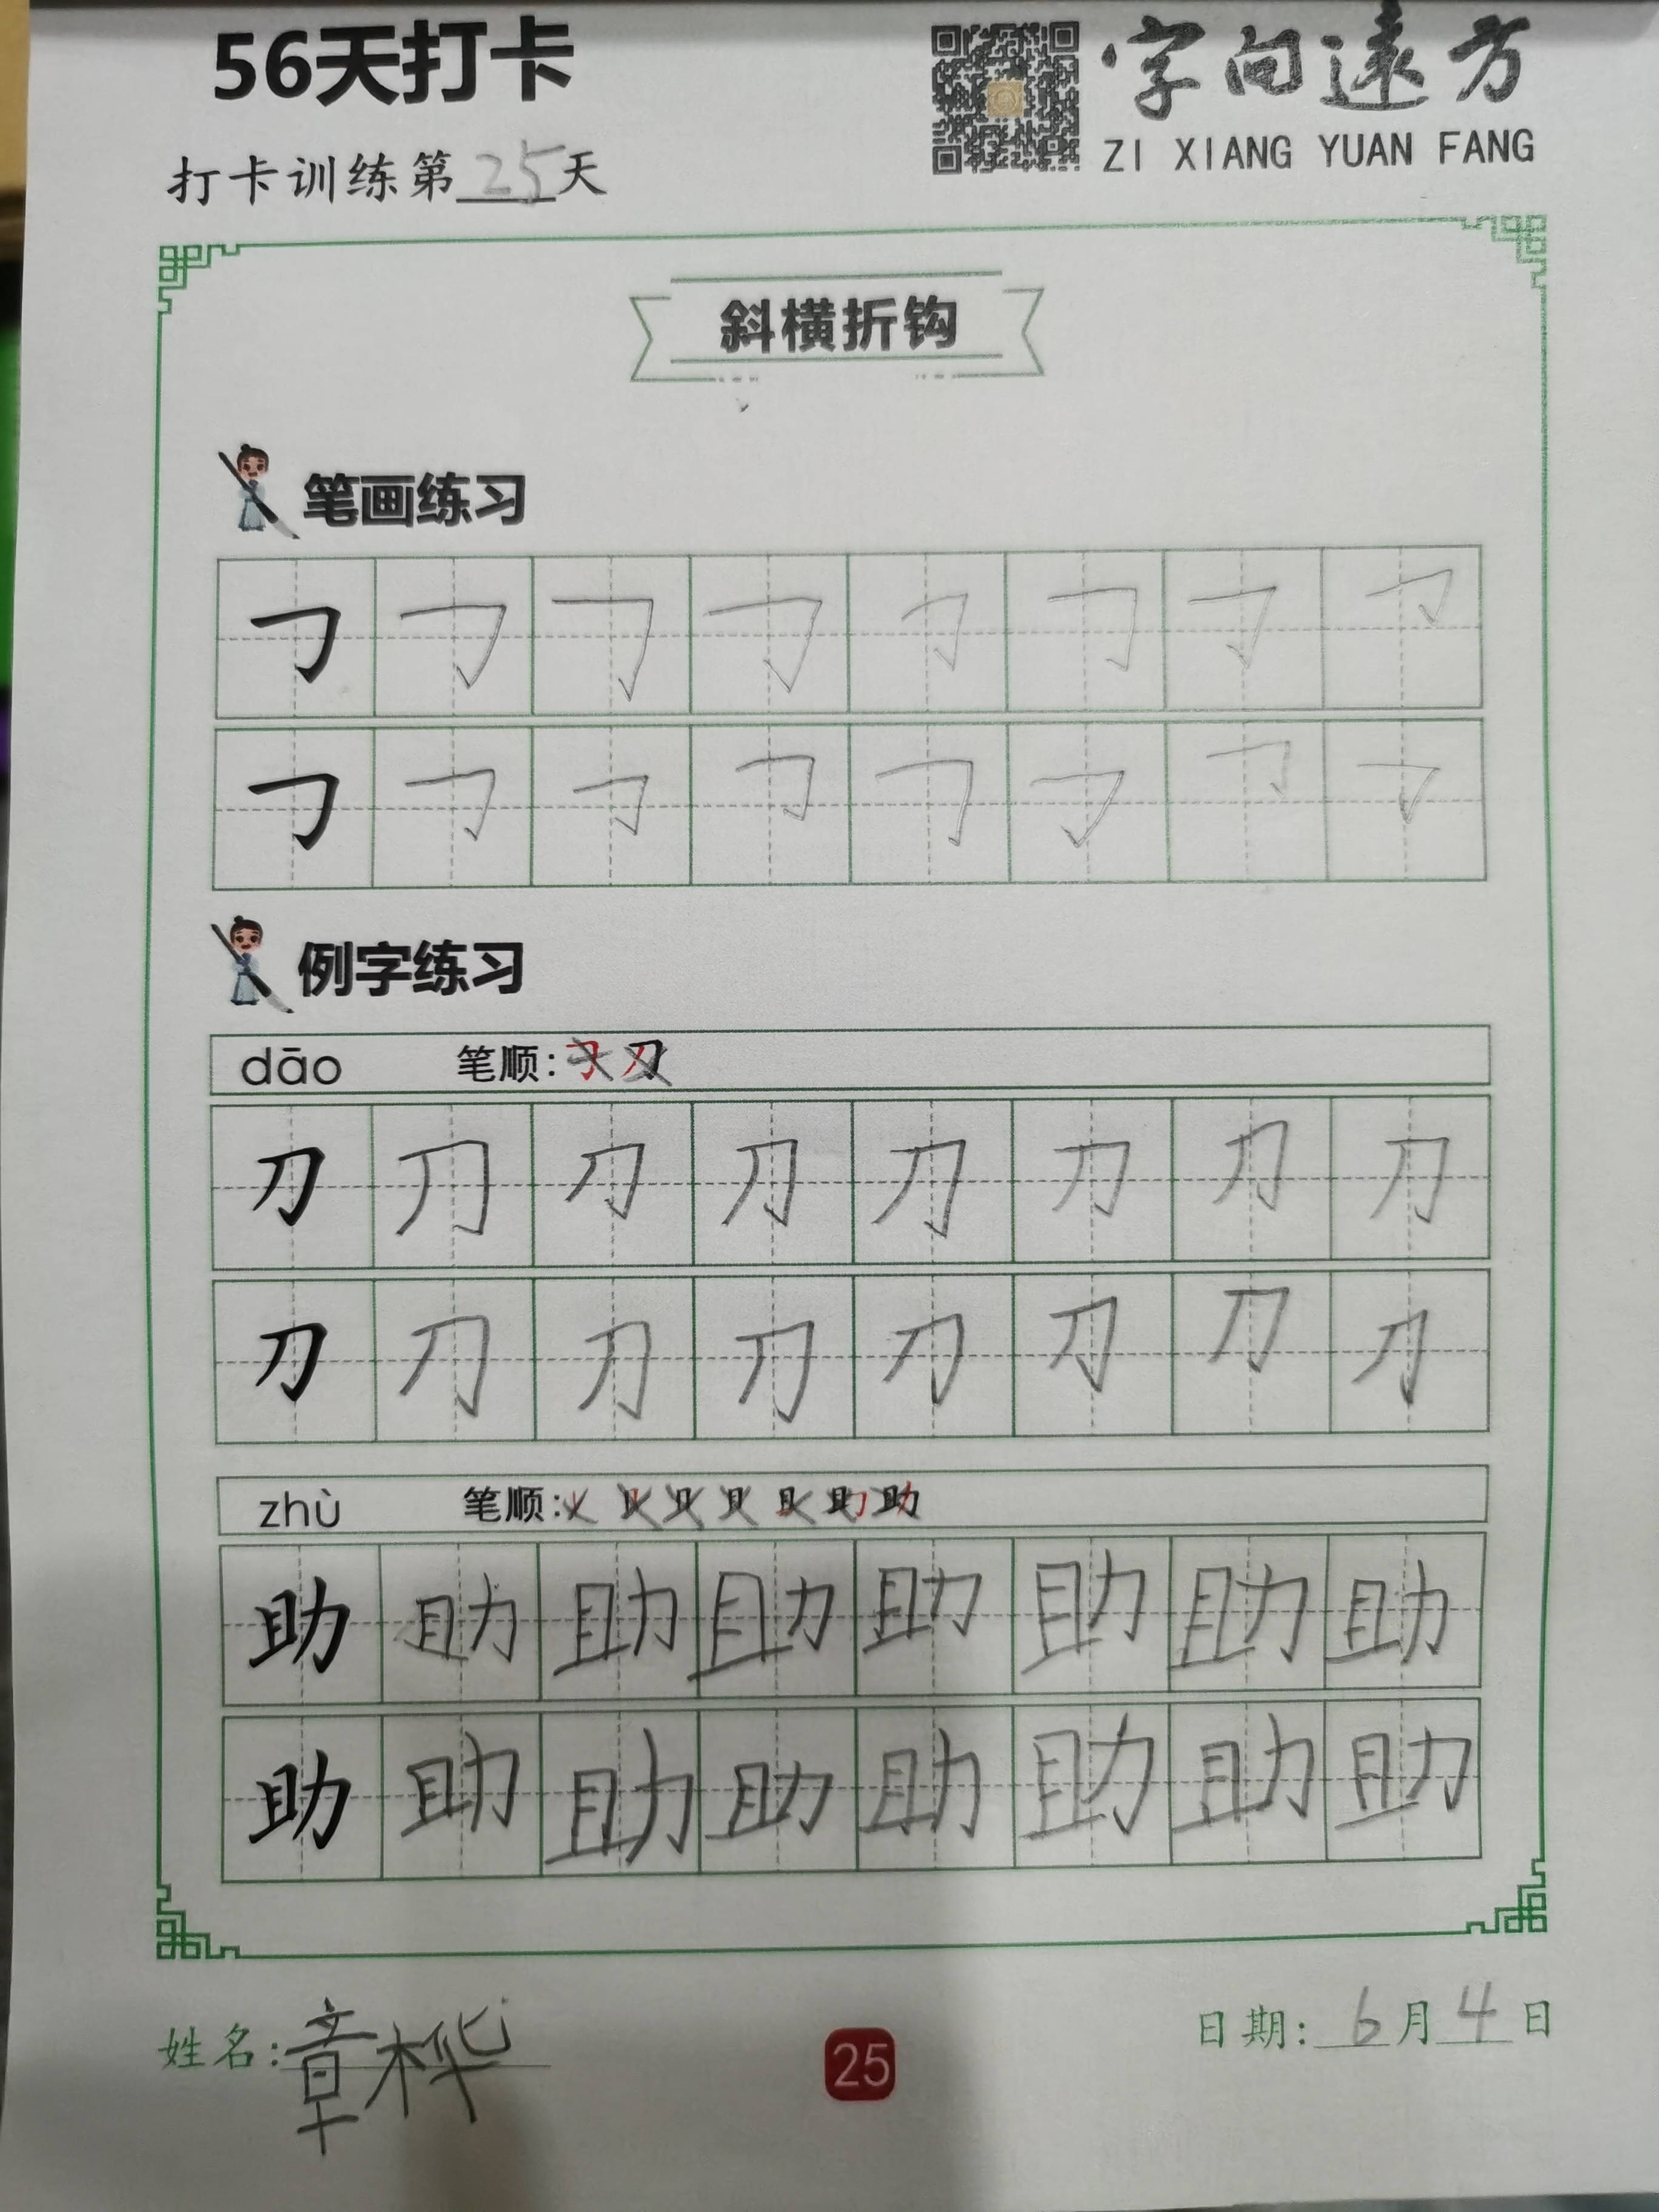 56天打卡
字向遠方
ZI XIANG YUAN FANG
打卡训练第25天
斜横折钩
笔画练习
𠃌 𠃌 𠃌 𠃌 𠃌 𠃌 𠃌 𠃌
𠃌 𠃌 𠃌 𠃌 𠃌 𠃌 𠃌 𠃌
例字练习
dāo 笔顺: 𠃌 刀
刀 刀 刀 刀 刀 刀 刀 刀
刀 刀 刀 刀 刀 刀 刀 刀
zhù 笔顺: 助
助 助 助 助 助 助 助 助
助 助 助 助 助 助 助 助
姓名:章桦
25
日期: 6月4日